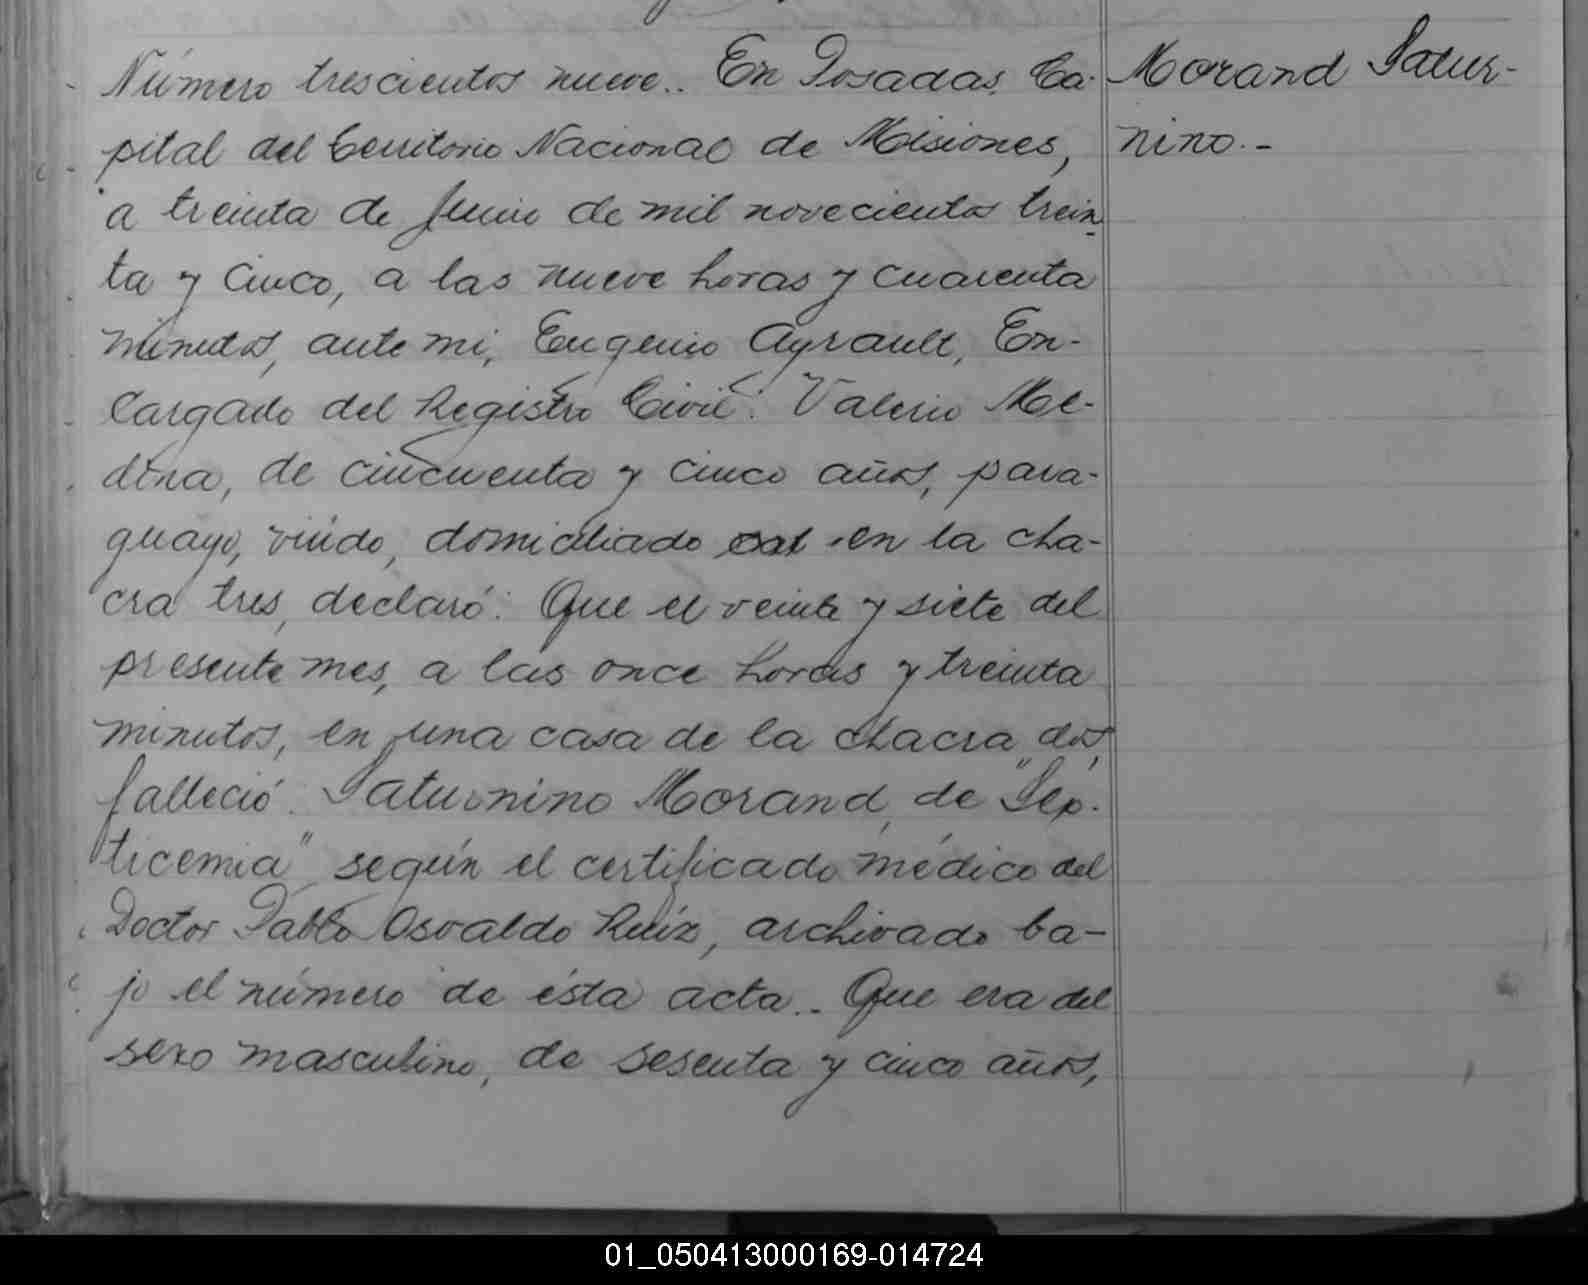 Número trescientos nueve.. En Posadas, Ca-
pital del Territorio Nacional de Misiones,
a treinta de Junio de mil novecientos trein
ta y cinco, a las nueve horas y cuarenta
minutos, ante mi, Eugenio Ayrault, En-
cargado del Registro Civil: Valerio Me-
dina, de cincuenta y cinco años, para-
guayo, viúdo, domiciliado en la cha-
cra tres, declaró: Que el veinte y siete del
presente mes, a las once horas y treinta
minutos, en una casa de la chacra dos,
falleció Saturnino Morand, de "Sep-
ticemia" según el certificado médico del
Doctor Pablo Osvaldo Ruíz, archivado ba-
jo el número de ésta acta.. Que era del
sexo masculino, de sesenta y cinco años,
Morand Satur-
nino.-
01_050413000169-014724